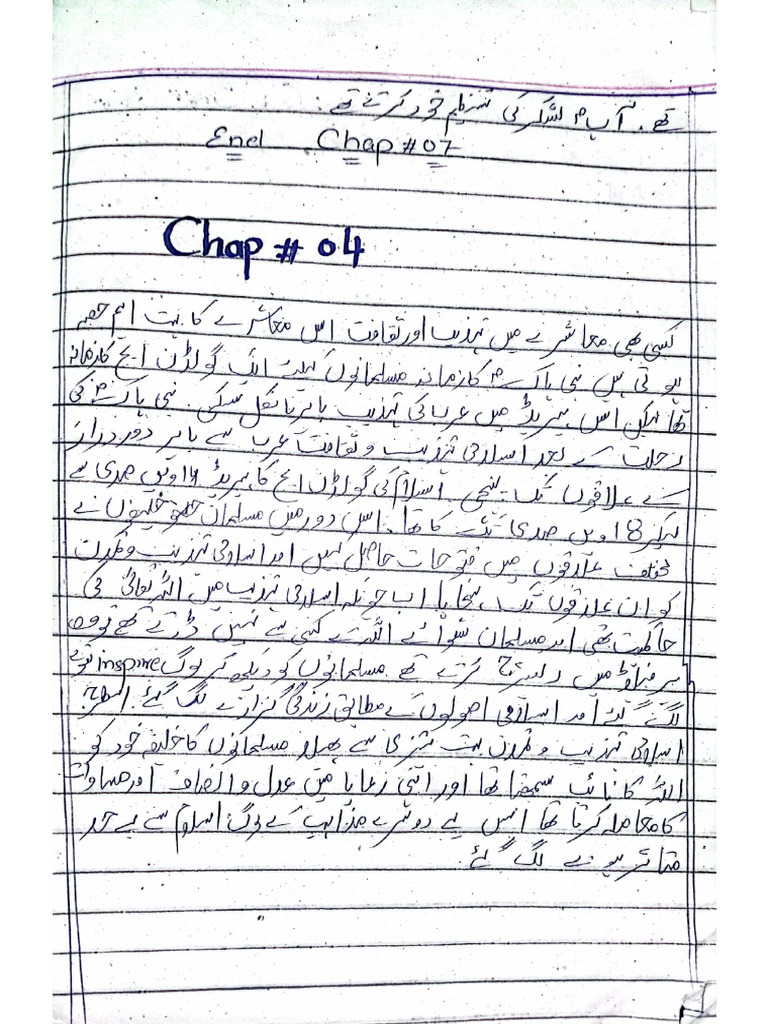 تھے۔ آپ ؐ لشکر کی تنظیم خود کرتے تھے۔
End Chap # 07
Chap # 04
کسی بھی معاشرے میں تہذیب اور ثقافت اس معاشرے کا بہت اہم حصہ
ہوتی ہیں نبی پاک ؐ کا زمانہ مسلمانوں کیلئے ایک گولڈن ایج کا زمانہ
تھا لیکن اس پیریڈ میں عرب کی تہذیب باہر نا نکل سکی۔ نبی پاک ؐ کی
رحلت کے بعد اسلامی تہذیب و ثقافت عرب سے باہر دور دراز
کے علاقوں تک پہنچی۔ اسلام کی گولڈن ایج کا پیریڈ ویں صدی سے
لیکر 18 ویں صدی تک کا تھا۔ اس دور میں مسلمان خلیفوں نے
مختلف علاقوں میں فتوحات حاصل کیں اور اسلامی تہذیب و تمدن
کو ان علاقوں تک پہنچایا اب چونکہ اسلامی تہذیب میں اللہ تعالیٰ کی
حاکمیت تھی اور مسلمان سوائے اللہ کے کسی سے نہیں ڈرتے تھے تو وہ
ہر میں ریسرچ کرتے تھے۔ مسلمانوں کو دیکھ کر لوگ inspire ہونے
لگ گئے اور اسلامی اصولوں کے مطابق زندگی گزارنے لگ گئے۔ اسطرح
اسلامی تہذیب و تمدن بہت تیزی سے پھیلا مسلمانوں کا خلیفہ خود کو
اللہ کا نائب سمجھتا تھا اور اپنی رعایا میں عدل و انصاف اور مساوات
کا معاملہ کرتا تھا اس لیے دوسرے مذاہب کے لوگ اسلام سے بے حد
متاثر ہونے لگ گئے۔